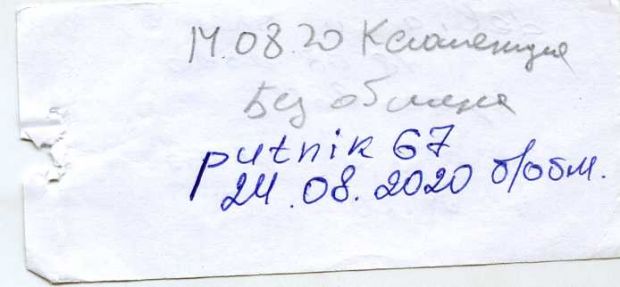 14.08.20
Без обмена
putnik 67
24.08.2020 б/обм.